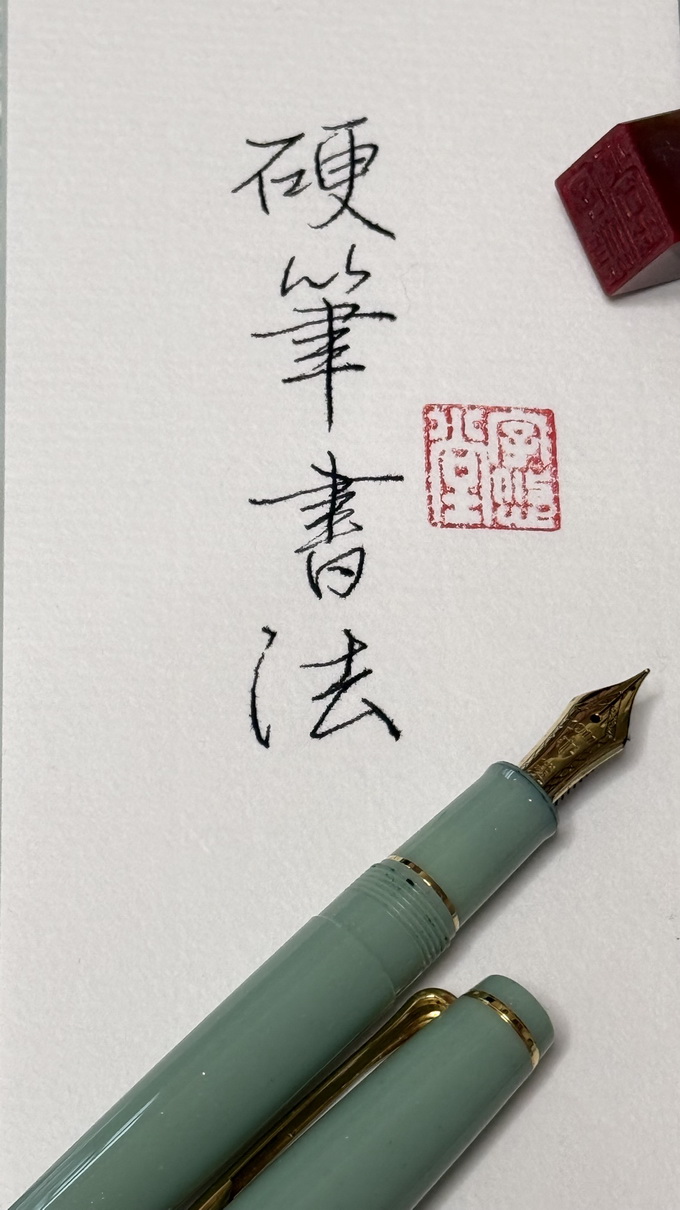 硬筆書法